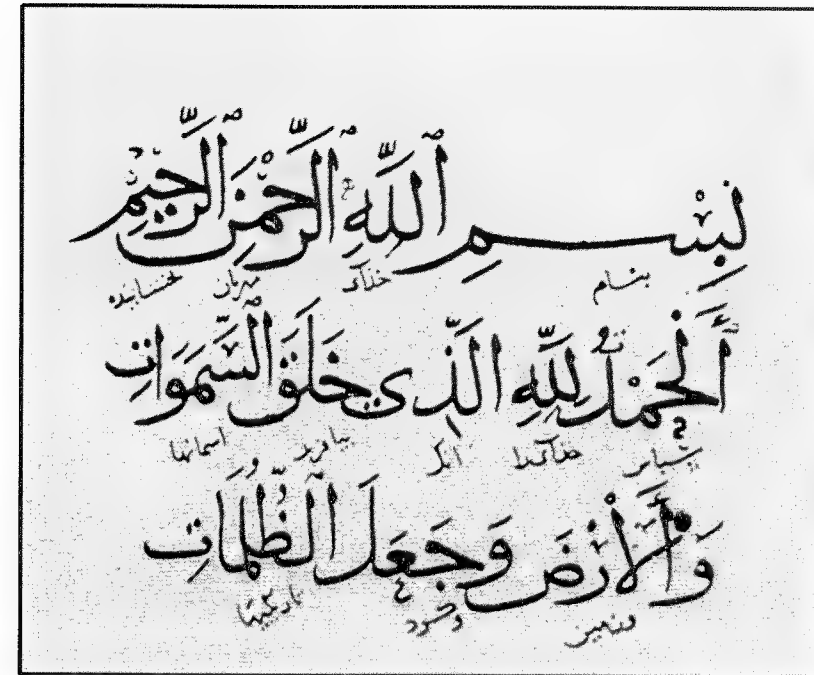 بِسْمِ ٱللَّهِ ٱلرَّحْمَٰنِ ٱلرَّحِيمِ
بنام خدآی مهربان بخشاینده
أَلْحَمْدُ لِلَّهِ الَّذِي خَلَقَ ٱلسَّمَوَاتِ
سپاس خدآیرا آنک بیافرید آسمانها
وَٱلْأَرْضَ وَجَعَلَ ٱلظُّلُمَاتِ
وزمین وکرد تاریکیها